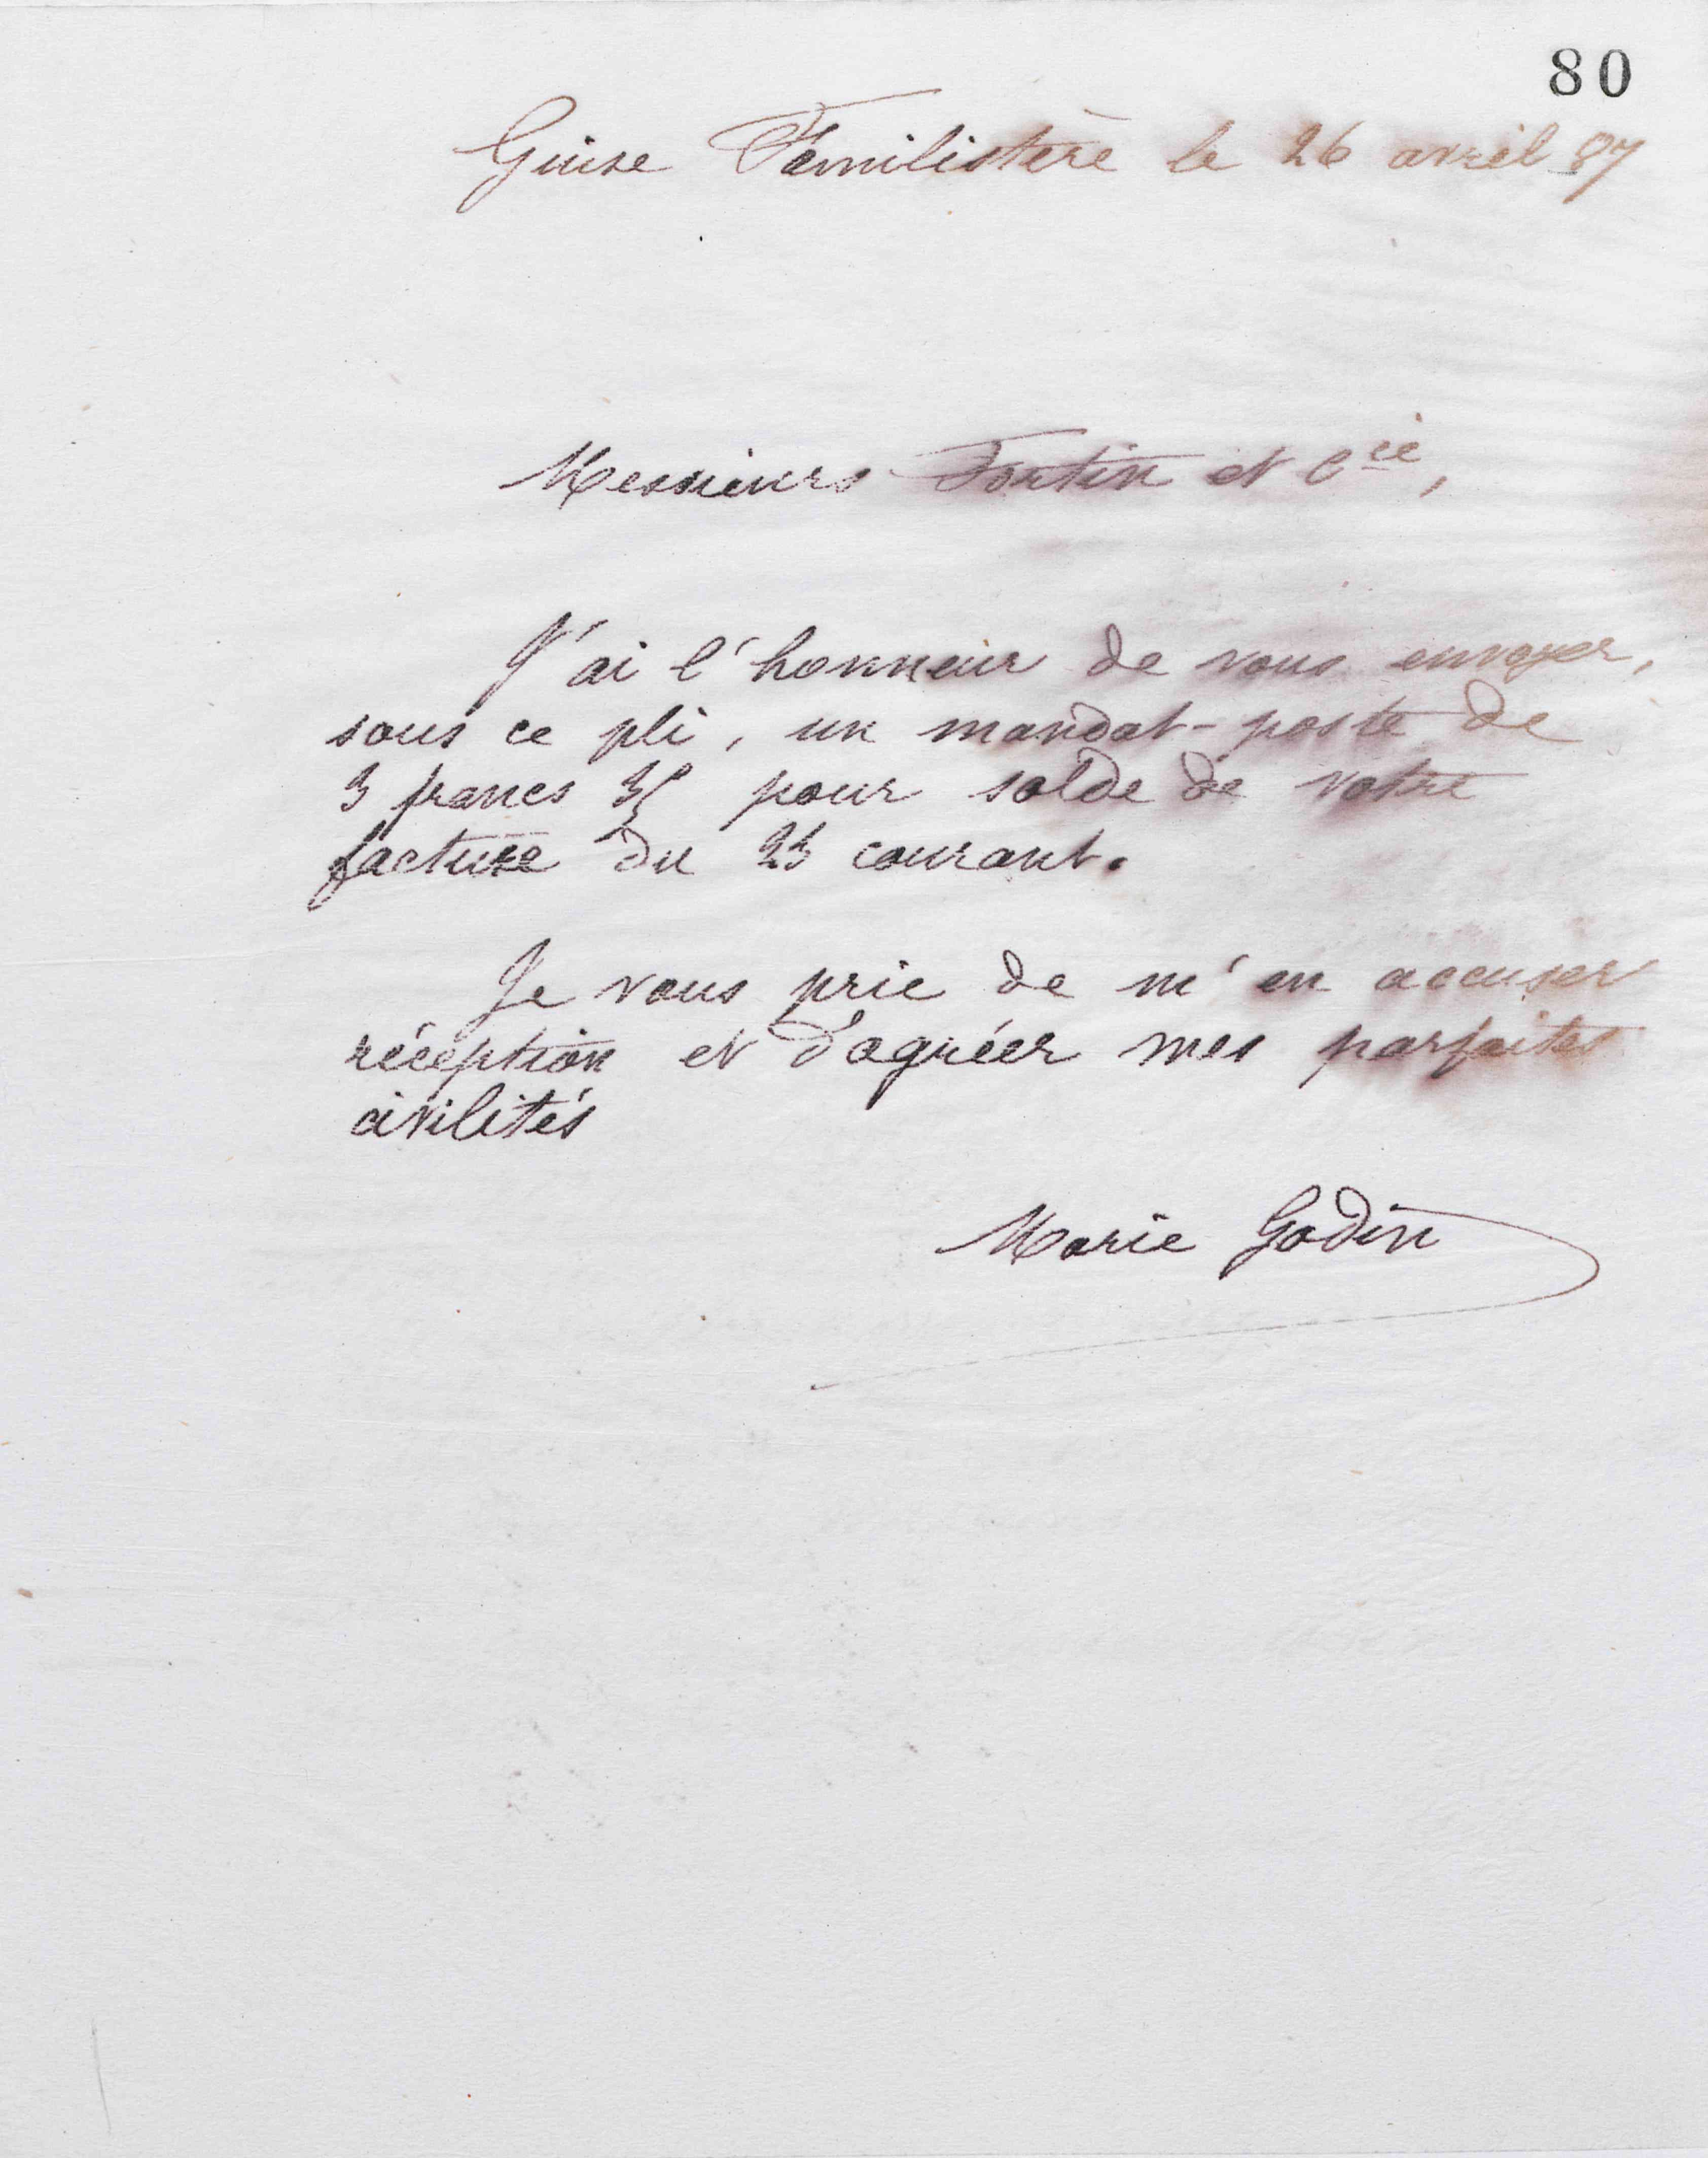 80
Guise Familistère le 26 avril 87
Messieurs Fortin et Cie,
J'ai l'honneur de vous envoyer,
sous ce pli, un mandat-poste de
3 francs 35 pour solde de votre
facture du 23 courant.
Je vous prie de m'en accuser
réception et d'agréer mes parfaites
civilités
Marie Godin